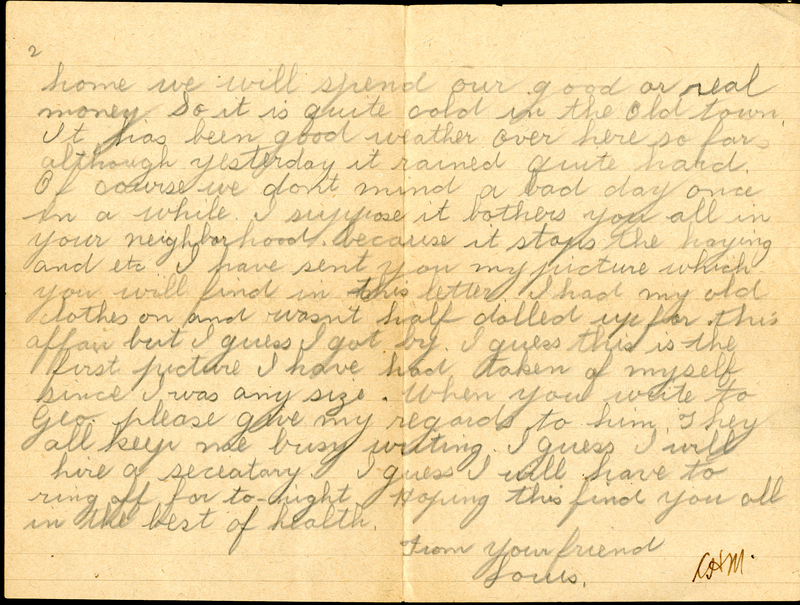 2
home we will spend our good or real
money. So it is quite cold in the Old town.
It has been good weather over here so far
although yesterday it rained quite hard.
Of course we dont mind a bad day once
in a while. I suppose it bothers you all in
your neighborhood. because it stops the haying
and etc I have sent you my picture which
you will find in this letter. I had my old
clothes on and wasn't half dolled up for this
affair but I guess I got by. I guess this is the
first picture I have had taken of myself
since I was any size. When you write to
Geo. please give my regards to him. They
all keep me busy writing. I guess I will
hire a seceatary. I guess I will have to
ring off for to-night. Hoping this find you all
in the best of health.
From your friend
Louis.